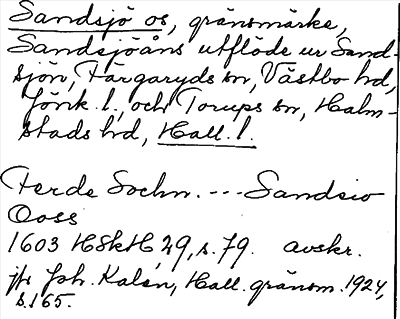 Sandsjö os, gränsmärke,
Sandsjöåns utflöde ur Sand-
sjön, Färgaryds sn, Västbo hd,
Jönk. l., och Torups sn, Halm-
stads hd, Hall. l.
Ferde Sochn. --- Sandsio
Ooss
1603 HSkH, 29, s. 79. avskr.
jfr Joh. Kalén, Hall. gränsm. 1924,
s. 165.